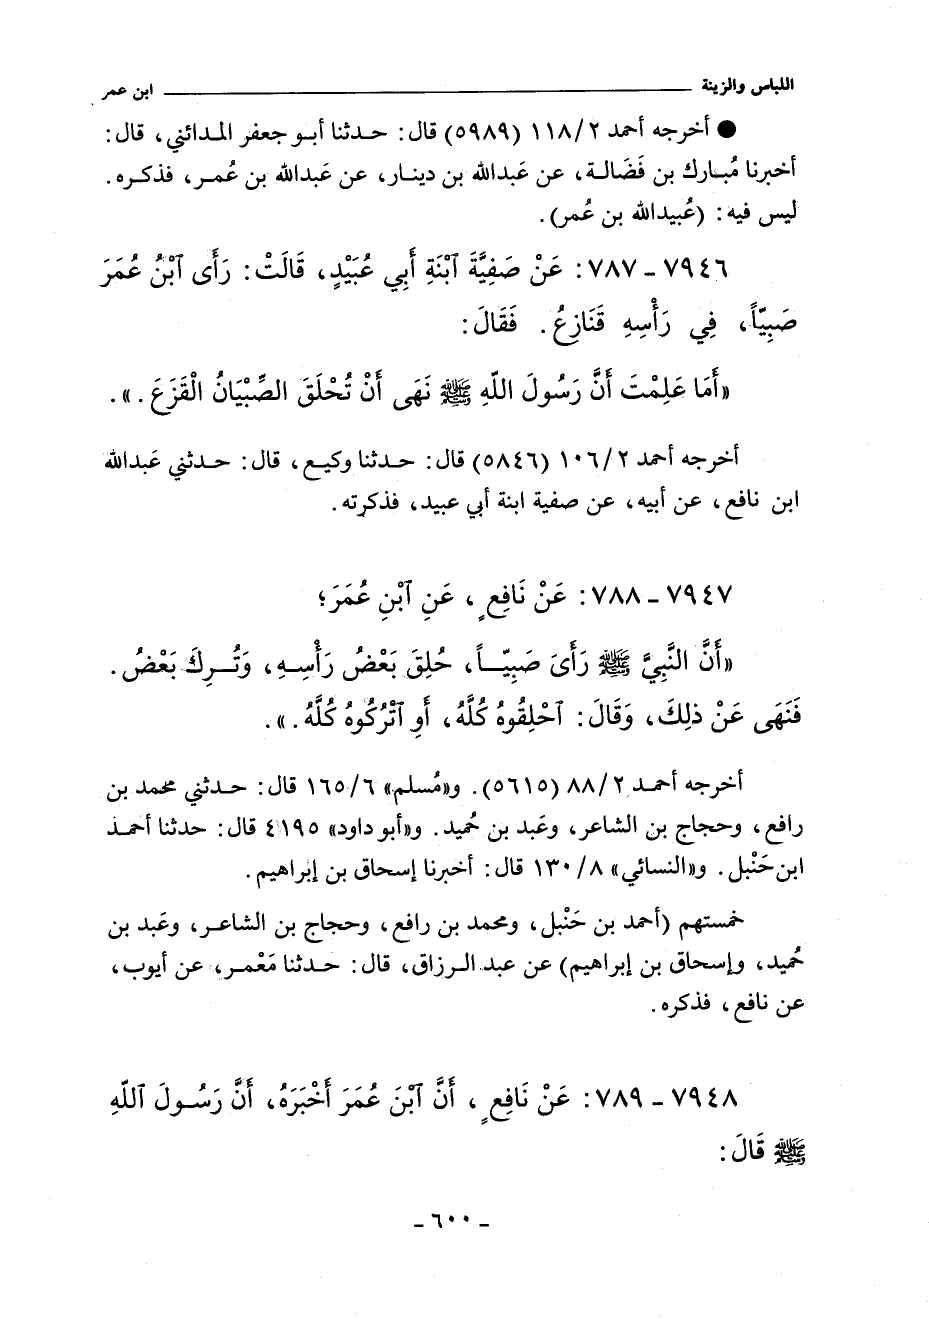 اللباس والزينة ــــــــــــــــــــ ابن عمر
● أخرجه أحمد ٢/١١٨ (٥٩٨٩) قال: حدثنا أبو جعفر المدائني، قال:
أخبرنا مُبارك بن فَضَالة، عن عَبدالله بن دينار، عن عَبدالله بن عُمر، فذكره.
ليس فيه: (عُبيدالله بن عُمر).
٧٩٤٦ - ٧٨٧: عَنْ صَفِيَّةَ ٱبْنَةِ أَبِي عُبَيْدٍ، قَالَتْ: رَأَى ٱبْنُ عُمَرَ
صَبِيّاً، فِي رَأْسِهِ قَنَازِعُ. فَقَالَ:
«أَمَا عَلِمْتَ أَنَّ رَسُولَ اللّهِ ﷺ نَهَى أَنْ تُحْلَقَ الصِّبْيَانُ الْقَزَعَ.».
أخرجه أحمد ٢/١٠٦ (٥٨٤٦) قال: حدثنا وكيع، قال: حدثني عَبدالله
ابن نافع، عن أبيه، عن صفية ابنة أبي عبيد، فذكرته.
٧٩٤٧ - ٧٨٨: عَنْ نَافِعٍ، عَنِ ٱبْنِ عُمَرَ؛
«أَنَّ النَّبِيَّ ﷺ رَأَىَ صَبِيّاً، حُلِقَ بَعْضُ رَأْسِهِ، وَتُرِكَ بَعْضُ.
فَنَهَى عَنْ ذلِكَ، وَقَالَ: ٱحْلِقُوهُ كُلَّهُ، أَوِ ٱتْرُكُوهُ كُلَّهُ.».
أخرجه أحمد ٢/٨٨ (٥٦١٥). و«مُسلم» ٦/١٦٥ قال: حدثني محمد بن
رافع، وحجاج بن الشاعر، وعَبد بن حُميد. و«أبو داود» ٤١٩٥ قال: حدثنا أحمد
ابن حَنْبل. و«النسائي» ٨/١٣٠ قال: أخبرنا إسحاق بن إبراهيم.
خمستهم (أحمد بن حَنْبل، ومحمد بن رافع، وحجاج بن الشاعر، وعَبد بن
حُميد، وإسحاق بن إبراهيم) عن عبد الرزاق، قال: حدثنا مَعْمر، عن أيوب،
عن نافع، فذكره.
٧٩٤٨ - ٧٨٩: عَنْ نَافِعٍ، أَنَّ ٱبْنَ عُمَرَ أَخْبَرَهُ، أَنَّ رَسُولَ ٱللّهِ
ﷺ قَالَ:
- ٦٠٠ -